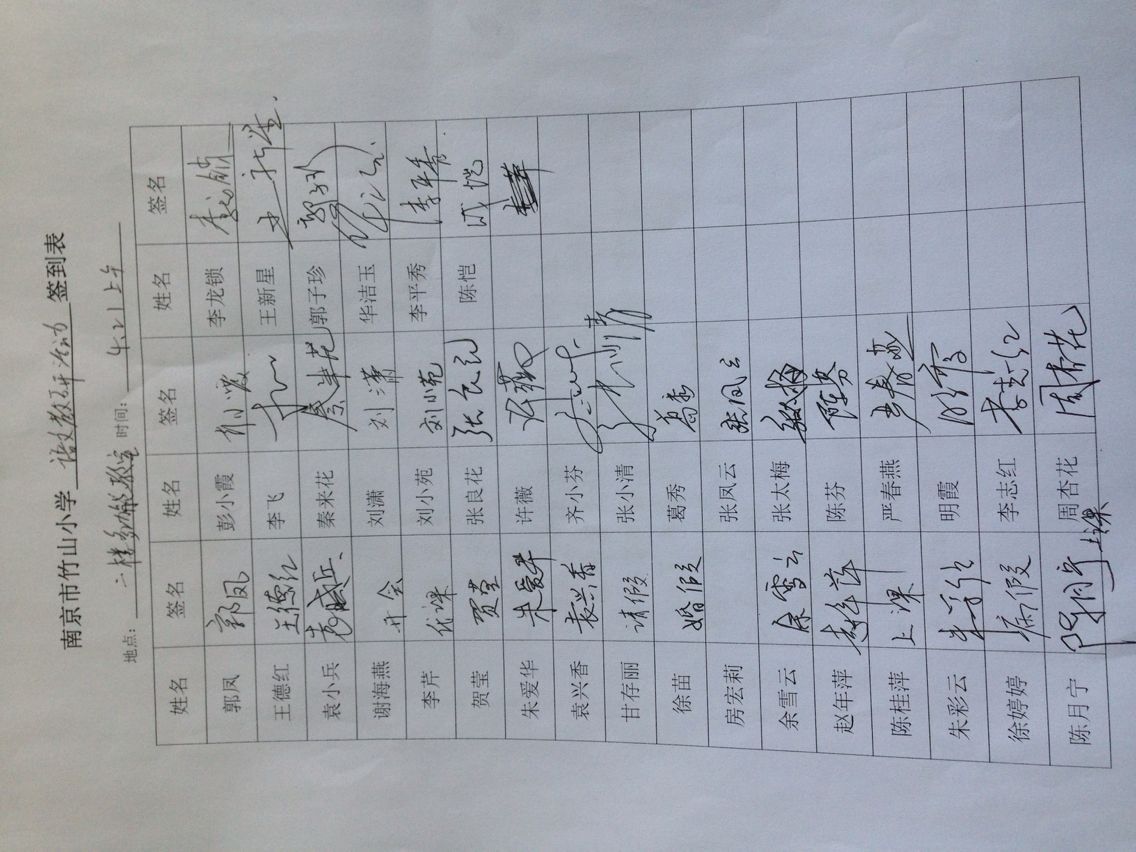 南京市竹山小学 语文教研活动 签到表
地点: 二楼多功能教室 时间: 4.21上午
姓名 签名 姓名 签名 姓名 签名
郭凤 郭凤 彭小霞 李龙锁 李龙锁
王德红 王德红 李飞 王新星 王新星
袁小兵 袁小兵 秦来花 秦来花 郭子珍 郭子珍
谢海燕 开会 刘潇 刘潇 华洁玉
李芹 代课 刘小苑 刘小苑 李平秀 李平秀
贺莹 贺莹 张良花 张良花 陈恺
朱爱华 朱爱华 许薇 许薇
袁兴香 袁兴香 齐小芬
甘存丽 请假 张小清
徐苗 婚假 葛秀 葛秀
房宏莉 张凤云 张凤云
余雪云 余雪云 张太梅
赵年萍 赵年萍 陈芬 陈芬
陈桂萍 上课 严春燕 严春燕
朱彩云 明霞 明霞
徐婷婷 病假 李志红 李志红
陈月宁 上课 周杏花 周杏花